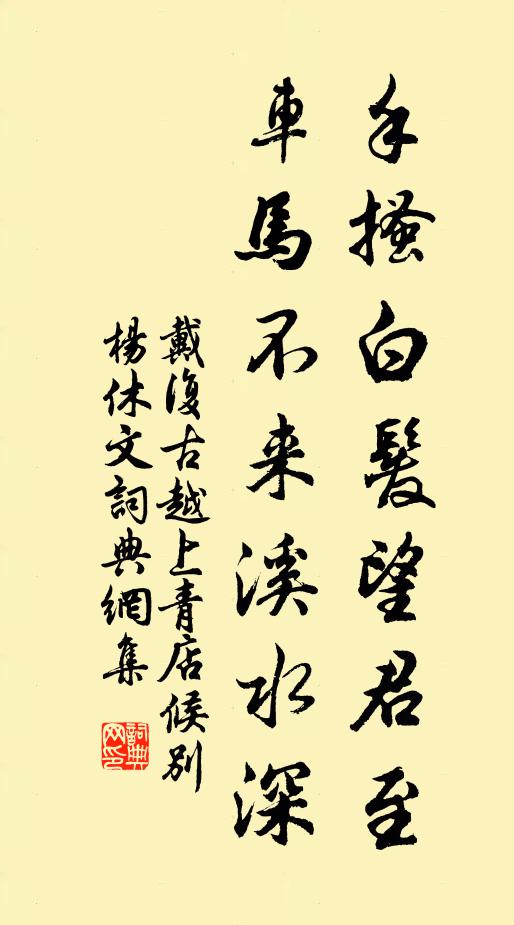 手搔白髮望君至
車馬不来溪水深
戴復古越上青店候别
楊休文詞典網集
詞典
网印